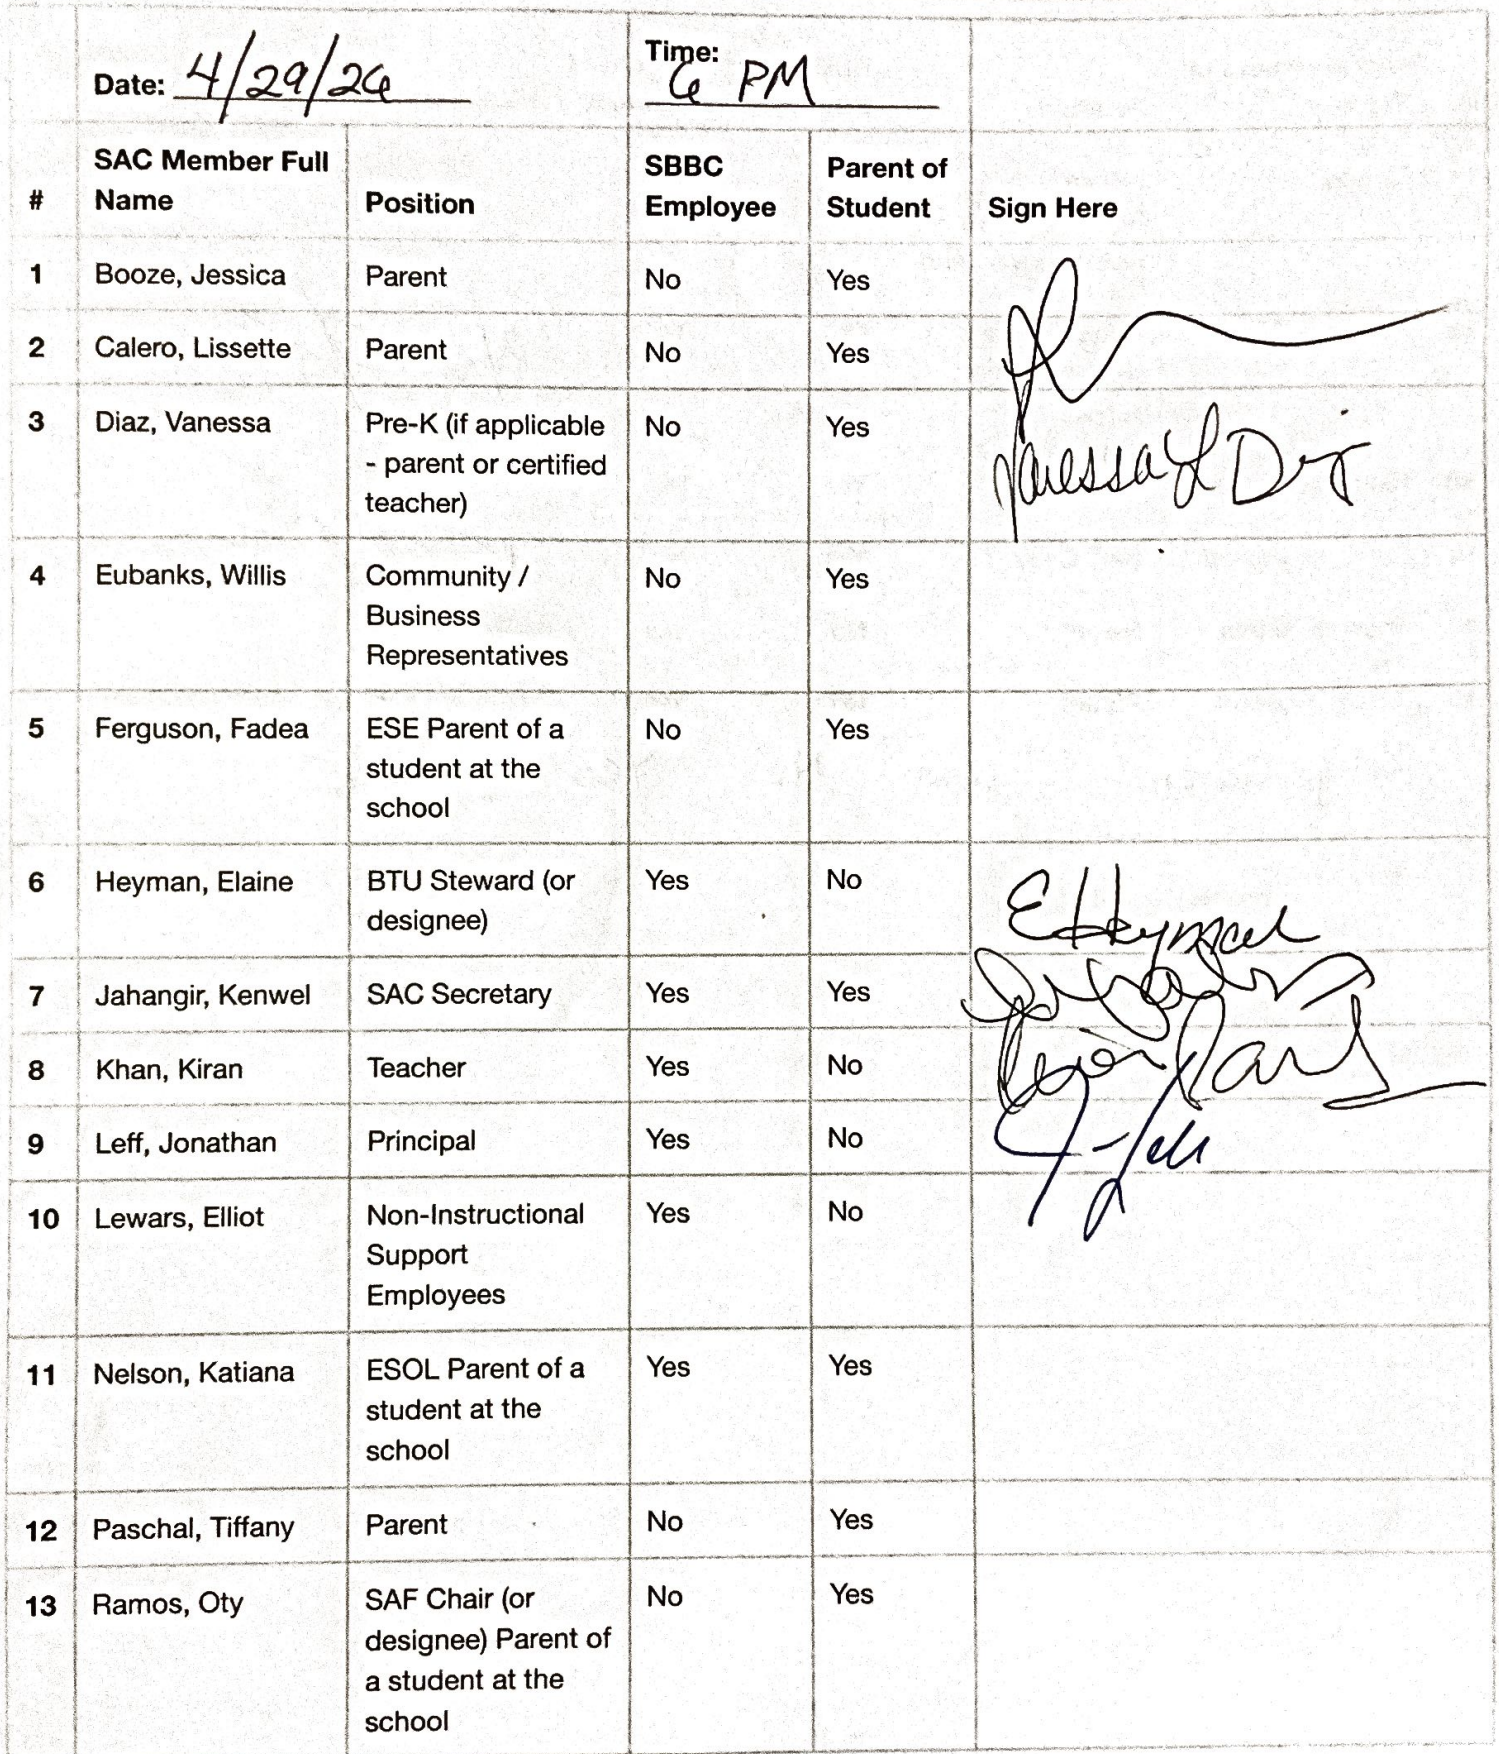 Date: 4/29/26 Time: 6 PM
# SAC Member Full Name Position SBBC Employee Parent of Student Sign Here
1 Booze, Jessica Parent No Yes
2 Calero, Lissette Parent No Yes
3 Diaz, Vanessa Pre-K (if applicable No Yes
- parent or certified
teacher)
Vanessa L Diaz
4 Eubanks, Willis Community / No Yes
Business
Representatives
5 Ferguson, Fadea ESE Parent of a No Yes
student at the
school
6 Heyman, Elaine BTU Steward (or Yes No
designee)
E Heyman
7 Jahangir, Kenwel SAC Secretary Yes Yes
8 Khan, Kiran Teacher Yes No
9 Leff, Jonathan Principal Yes No
10 Lewars, Elliot Non-Instructional Yes No
Support
Employees
11 Nelson, Katiana ESOL Parent of a Yes Yes
student at the
school
12 Paschal, Tiffany Parent No Yes
13 Ramos, Oty SAF Chair (or No Yes
designee) Parent of
a student at the
school